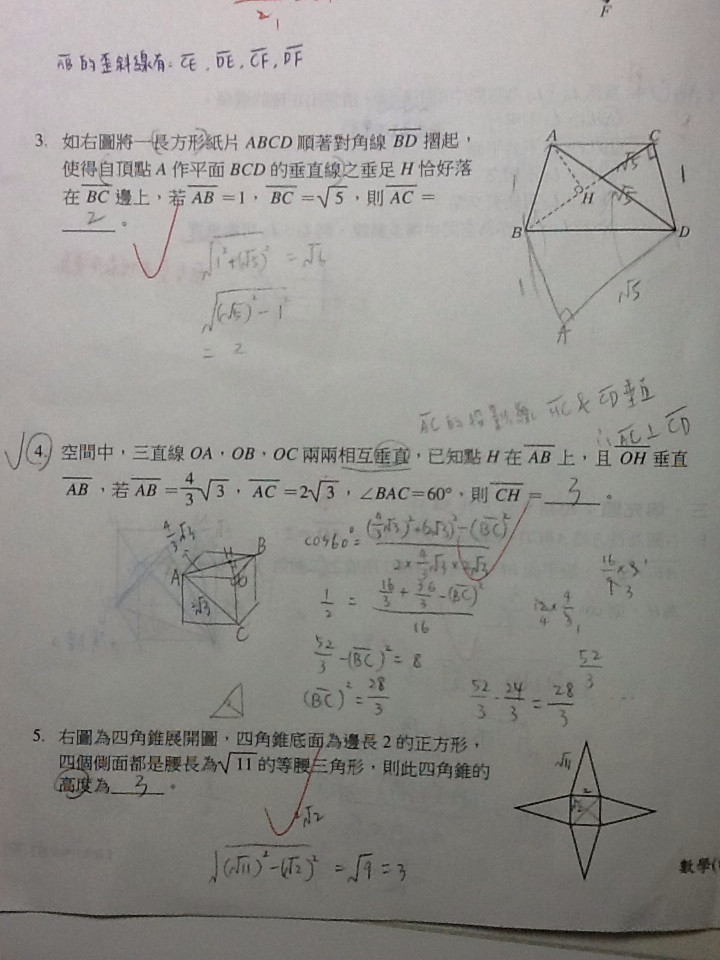 2
1
F
AB的歪斜線有：CE、DE、CF、DF
3. 如右圖將一長方形紙片 ABCD 順著對角線 BD 摺起，
使得自頂點 A 作平面 BCD 的垂直線之垂足 H 恰好落
在 BC 邊上，若 AB =1，BC =√5，則 AC =
2 。
A C
√5
1 H √5 1
B D
1 √5
A
√1²+(√5)² = √6
√(√5)² − 1²
= 2
AC的投影線 HC 與 CD 垂直
∴ AC ⊥ CD
4. 空間中，三直線 OA，OB，OC 兩兩相互垂直，已知點 H 在 AB 上，且 OH 垂直
AB，若 AB = 4/3 √3，AC =2√3，∠BAC=60°，則 CH = 3 。
4/3 √3
H B
A O
2√3
C
cos60° = ((4/3 √3)²+(2√3)²−(BC)²)/(2×4/3 √3×2√3)
1/2 = (16/3 + 36/3 −(BC)²)/16
52/3 −(BC)² = 8
(BC)² = 28/3
52/3 − 24/3 = 28/3
52/3
5. 右圖為四角錐展開圖，四角錐底面為邊長 2 的正方形，
四個側面都是腰長為√11 的等腰三角形，則此四角錐的
高度為 3 。
√11
2
√2
√2
√(√11)²−(√2)² = √9 = 3
數學(